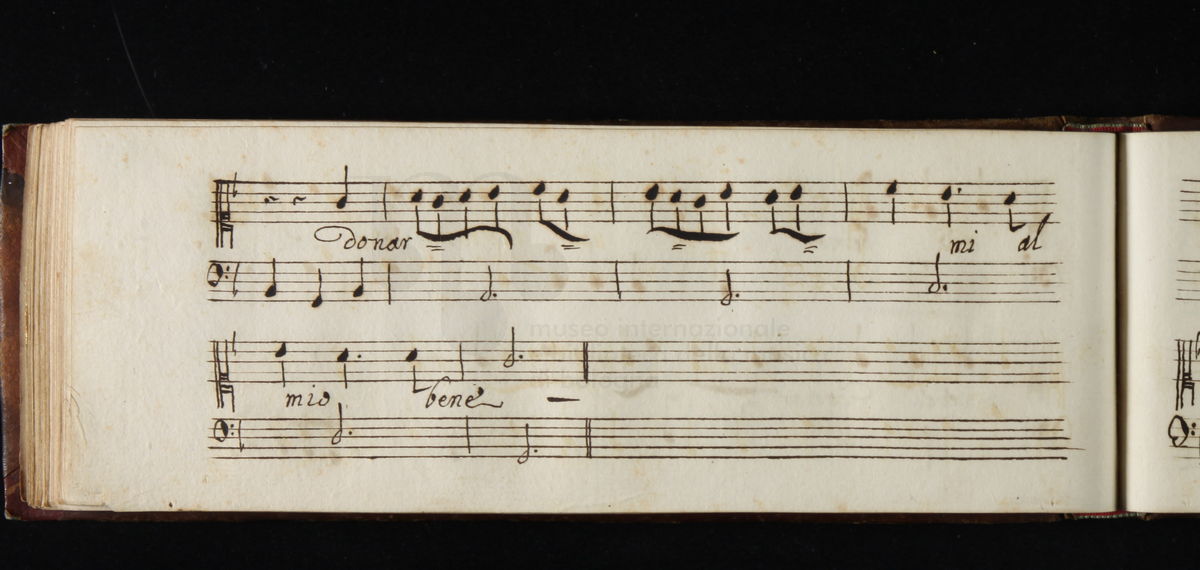 donar mi al
museo internazionale
mio bene